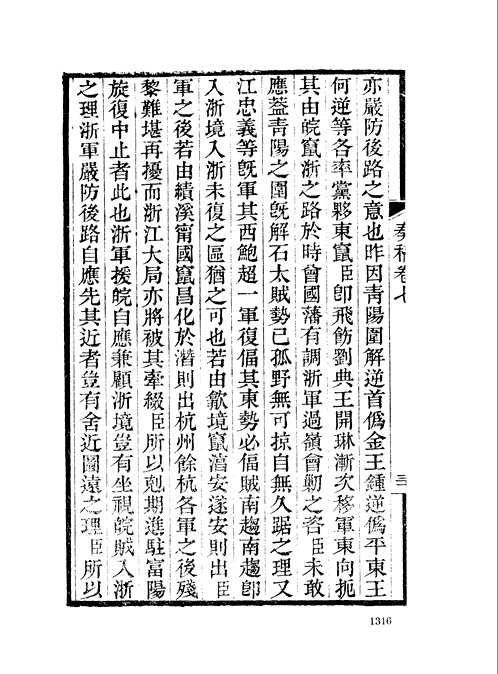 亦嚴防後路之意也昨因靑陽圍解逆首僞金王鍾逆僞平東王
何逆等各率黨夥東竄臣卽飛飭劉典王開琳漸次移軍東向扼
其由皖竄浙之路於時會國藩有調浙軍過嶺會勦之咨臣未敢
應蓋靑陽之圍旣解石太賊勢已孤野無可掠自無久踞之理又
江忠義等旣軍其西鮑超一軍復偪其東勢必偪賊南趨南趨卽
入浙境入浙未復之區猶之可也若由歙境竄湻安遂安則出臣
軍之後若由績溪甯國竄昌化於潛則出杭州餘杭各軍之後殘
黎難堪再擾而浙江大局亦將被其牽綴臣所以剋期進駐富陽
旋復中止者此也浙軍援皖自應兼顧浙境豈有坐視皖賊入浙
之理浙軍嚴防後路自應先其近者豈有舍近圖遠之理臣所以
奏稿卷七
三
1316